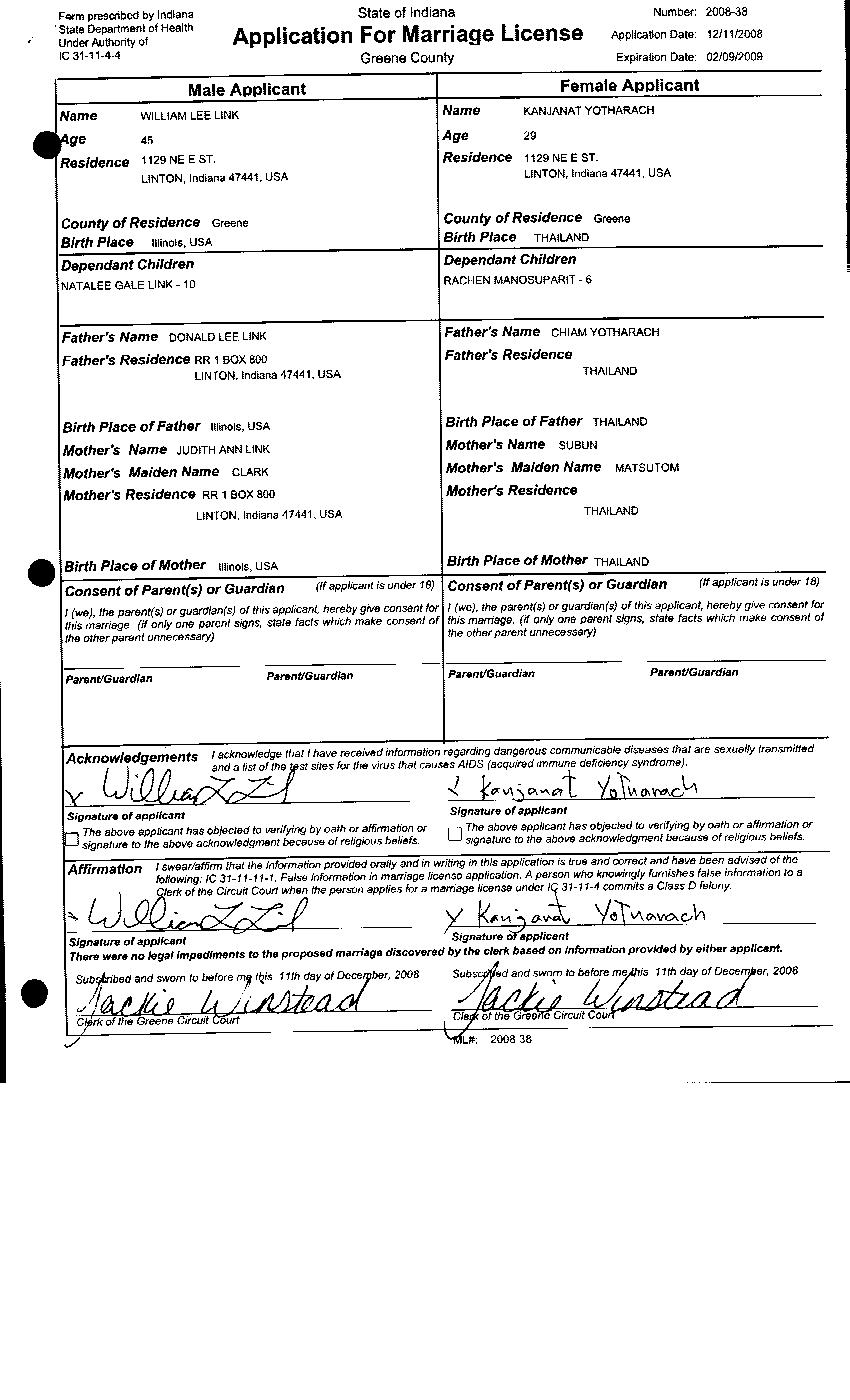 Form prescribed by Indiana
State Department of Health
Under Authority of
IC 31-11-4-4
State of Indiana
Application For Marriage License
Greene County
Number: 2008-38
Application Date: 12/11/2008
Expiration Date: 02/09/2009
Male Applicant
Name WILLIAM LEE LINK
Age 45
Residence 1129 NE E ST.
LINTON, Indiana 47441, USA
County of Residence Greene
Birth Place Illinois, USA
Dependant Children
NATALEE GALE LINK - 10
Father's Name DONALD LEE LINK
Father's Residence RR 1 BOX 800
LINTON, Indiana 47441, USA
Birth Place of Father Illinois, USA
Mother's Name JUDITH ANN LINK
Mother's Maiden Name CLARK
Mother's Residence RR 1 BOX 800
LINTON, Indiana 47441, USA
Birth Place of Mother Illinois, USA
Consent of Parent(s) or Guardian (If applicant is under 18)
I (we), the parent(s) or guardian(s) of this applicant, hereby give consent for
this marriage. (if only one parent signs, state facts which make consent of
the other parent unnecessary)
Parent/Guardian Parent/Guardian
Female Applicant
Name KANJANAT YOTHARACH
Age 29
Residence 1129 NE E ST.
LINTON, Indiana 47441, USA
County of Residence Greene
Birth Place THAILAND
Dependant Children
RACHEN MANOSUPARIT - 6
Father's Name CHIAM YOTHARACH
Father's Residence
THAILAND
Birth Place of Father THAILAND
Mother's Name SUBUN
Mother's Maiden Name MATSUTOM
Mother's Residence
THAILAND
Birth Place of Mother THAILAND
Consent of Parent(s) or Guardian (If applicant is under 18)
I (we), the parent(s) or guardian(s) of this applicant, hereby give consent for
this marriage. (if only one parent signs, state facts which make consent of
the other parent unnecessary)
Parent/Guardian Parent/Guardian
Acknowledgements I acknowledge that I have received information regarding dangerous communicable diseases that are sexually transmitted
and a list of the test sites for the virus that causes AIDS (acquired immune deficiency syndrome).
x William L Link
Signature of applicant
The above applicant has objected to verifying by oath or affirmation or
signature to the above acknowledgment because of religious beliefs.
x Kanjanat Yotharach
Signature of applicant
The above applicant has objected to verifying by oath or affirmation or
signature to the above acknowledgment because of religious beliefs.
Affirmation I swear/affirm that the information provided orally and in writing in this application is true and correct and have been advised of the
following: IC 31-11-11-1. False Information in marriage license application. A person who knowingly furnishes false information to a
Clerk of the Circuit Court when the person applies for a marriage license under IC 31-11-4 commits a Class D felony.
x William L Link
Signature of applicant
x Kanjanat Yotharach
Signature of applicant
There were no legal impediments to the proposed marriage discovered by the clerk based on information provided by either applicant.
Subscribed and sworn to before me this 11th day of December, 2008
Jackie Winstead
Clerk of the Greene Circuit Court
Subscribed and sworn to before me this 11th day of December, 2008
Jackie Winstead
Clerk of the Greene Circuit Court
ML#: 2008 38